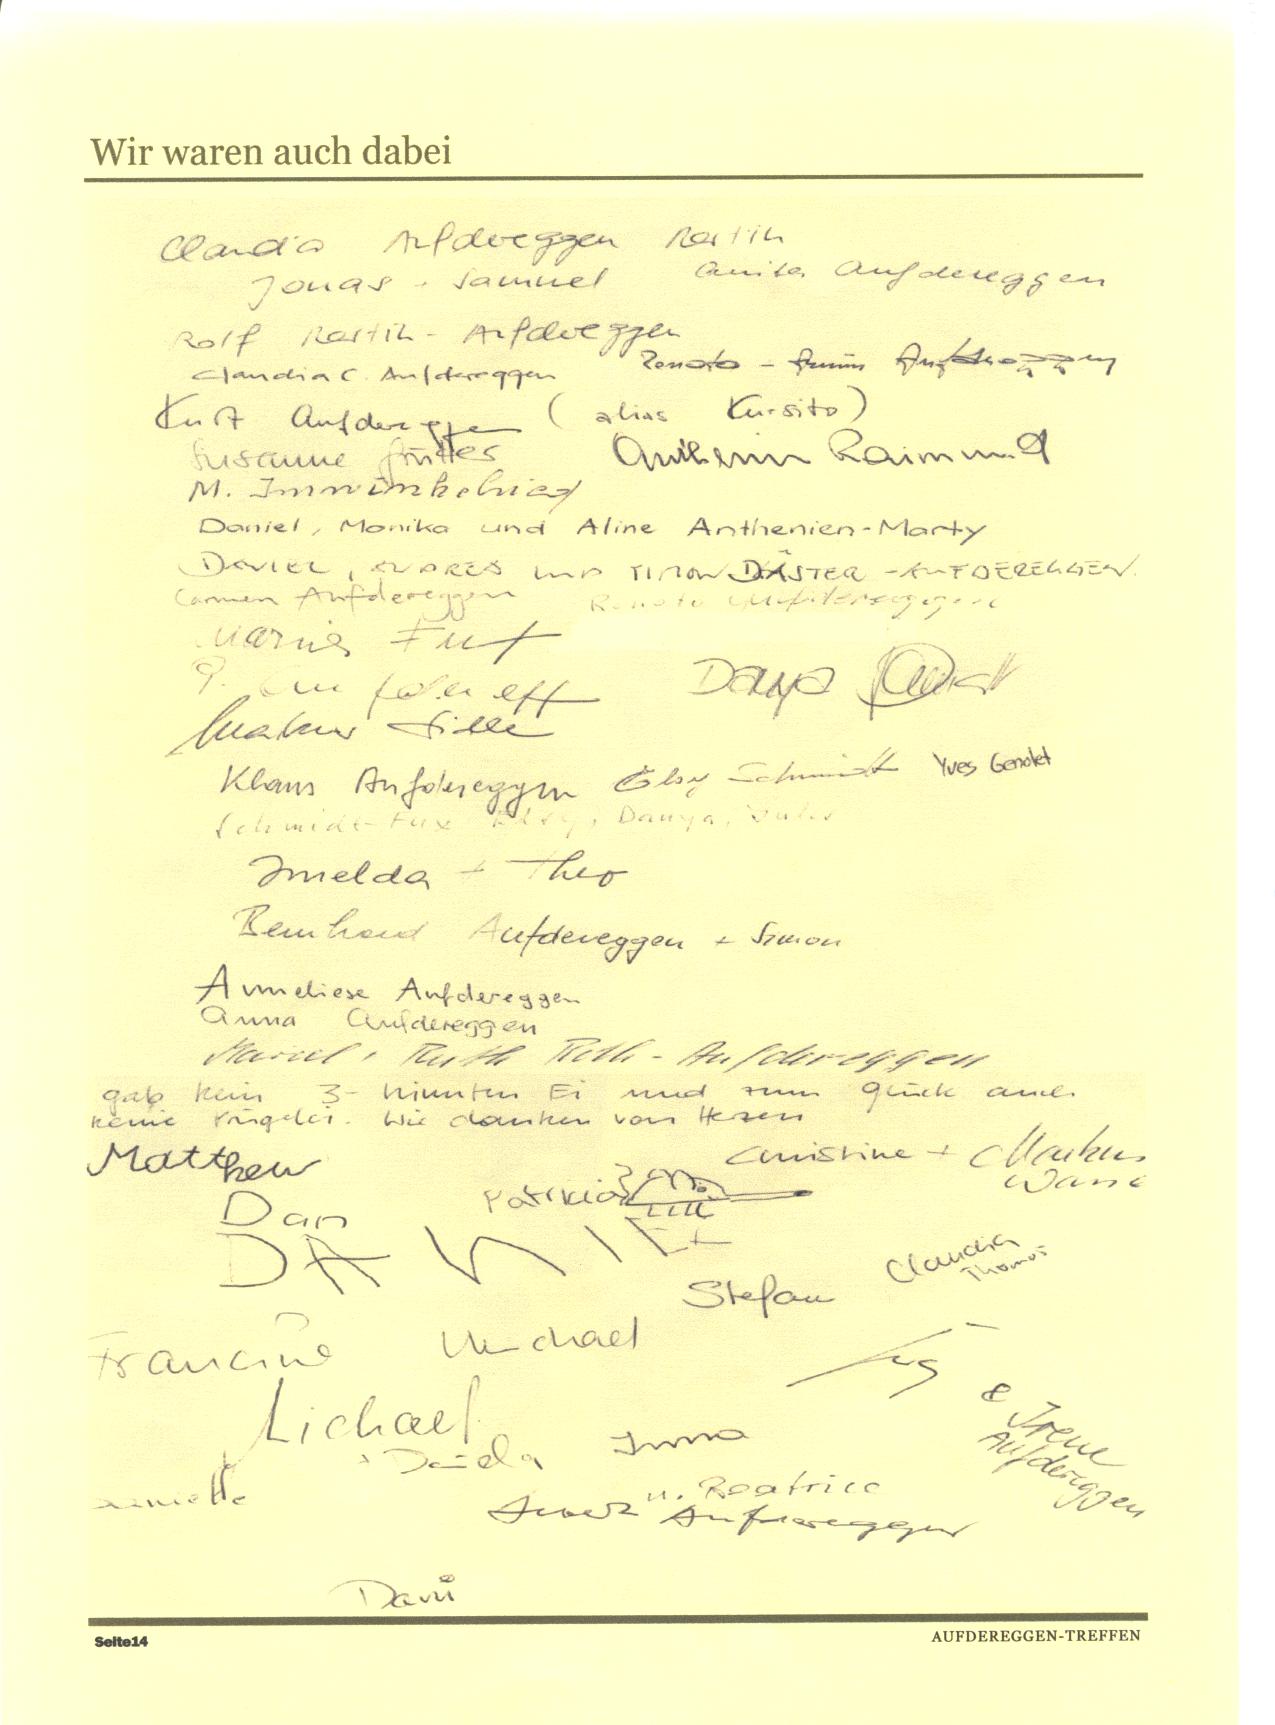 Wir waren auch dabei
Claudia Aufdereggen
Jonas + Samuel
Anita Aufdereggen
Rolf - Aufdereggen
Claudia C. Aufdereggen
Renato - Aufdereggen
Kurt Aufdereggen (alias Kursito)
Susanne
Raimund
M. Imwinkelried
Daniel, Monika und Aline Anthenien-Marty
DANIEL, ANDREA UND TIMON DÄSTER-AUFDEREGGEN.
Carmen Aufdereggen
Renato Aufdereggen
Danya
Markus
Klaus Aufdereggen Elsy Schmidt Yves Genolet
Schmidt-Fux Elsy, Danya,
Imelda + Theo
Bernhard Aufdereggen + Simon
Anneliese Aufdereggen
Anna Aufdereggen
Marcel + Ruth Roth-Aufdereggen
gab kein 3-minuten Ei und zum glück auch
keine Prügelei. Wir danken von Herzen
Matthew
Christine + Markus
Patricia
Dan
DANIEL
Claudia
Thomas
Stefan
Francine Michael
& Irene
Aufdereggen
Michael
Daniela
Imma
Danielle
u. Beatrice
Aufdereggen
Dani
Seite14
AUFDEREGGEN-TREFFEN